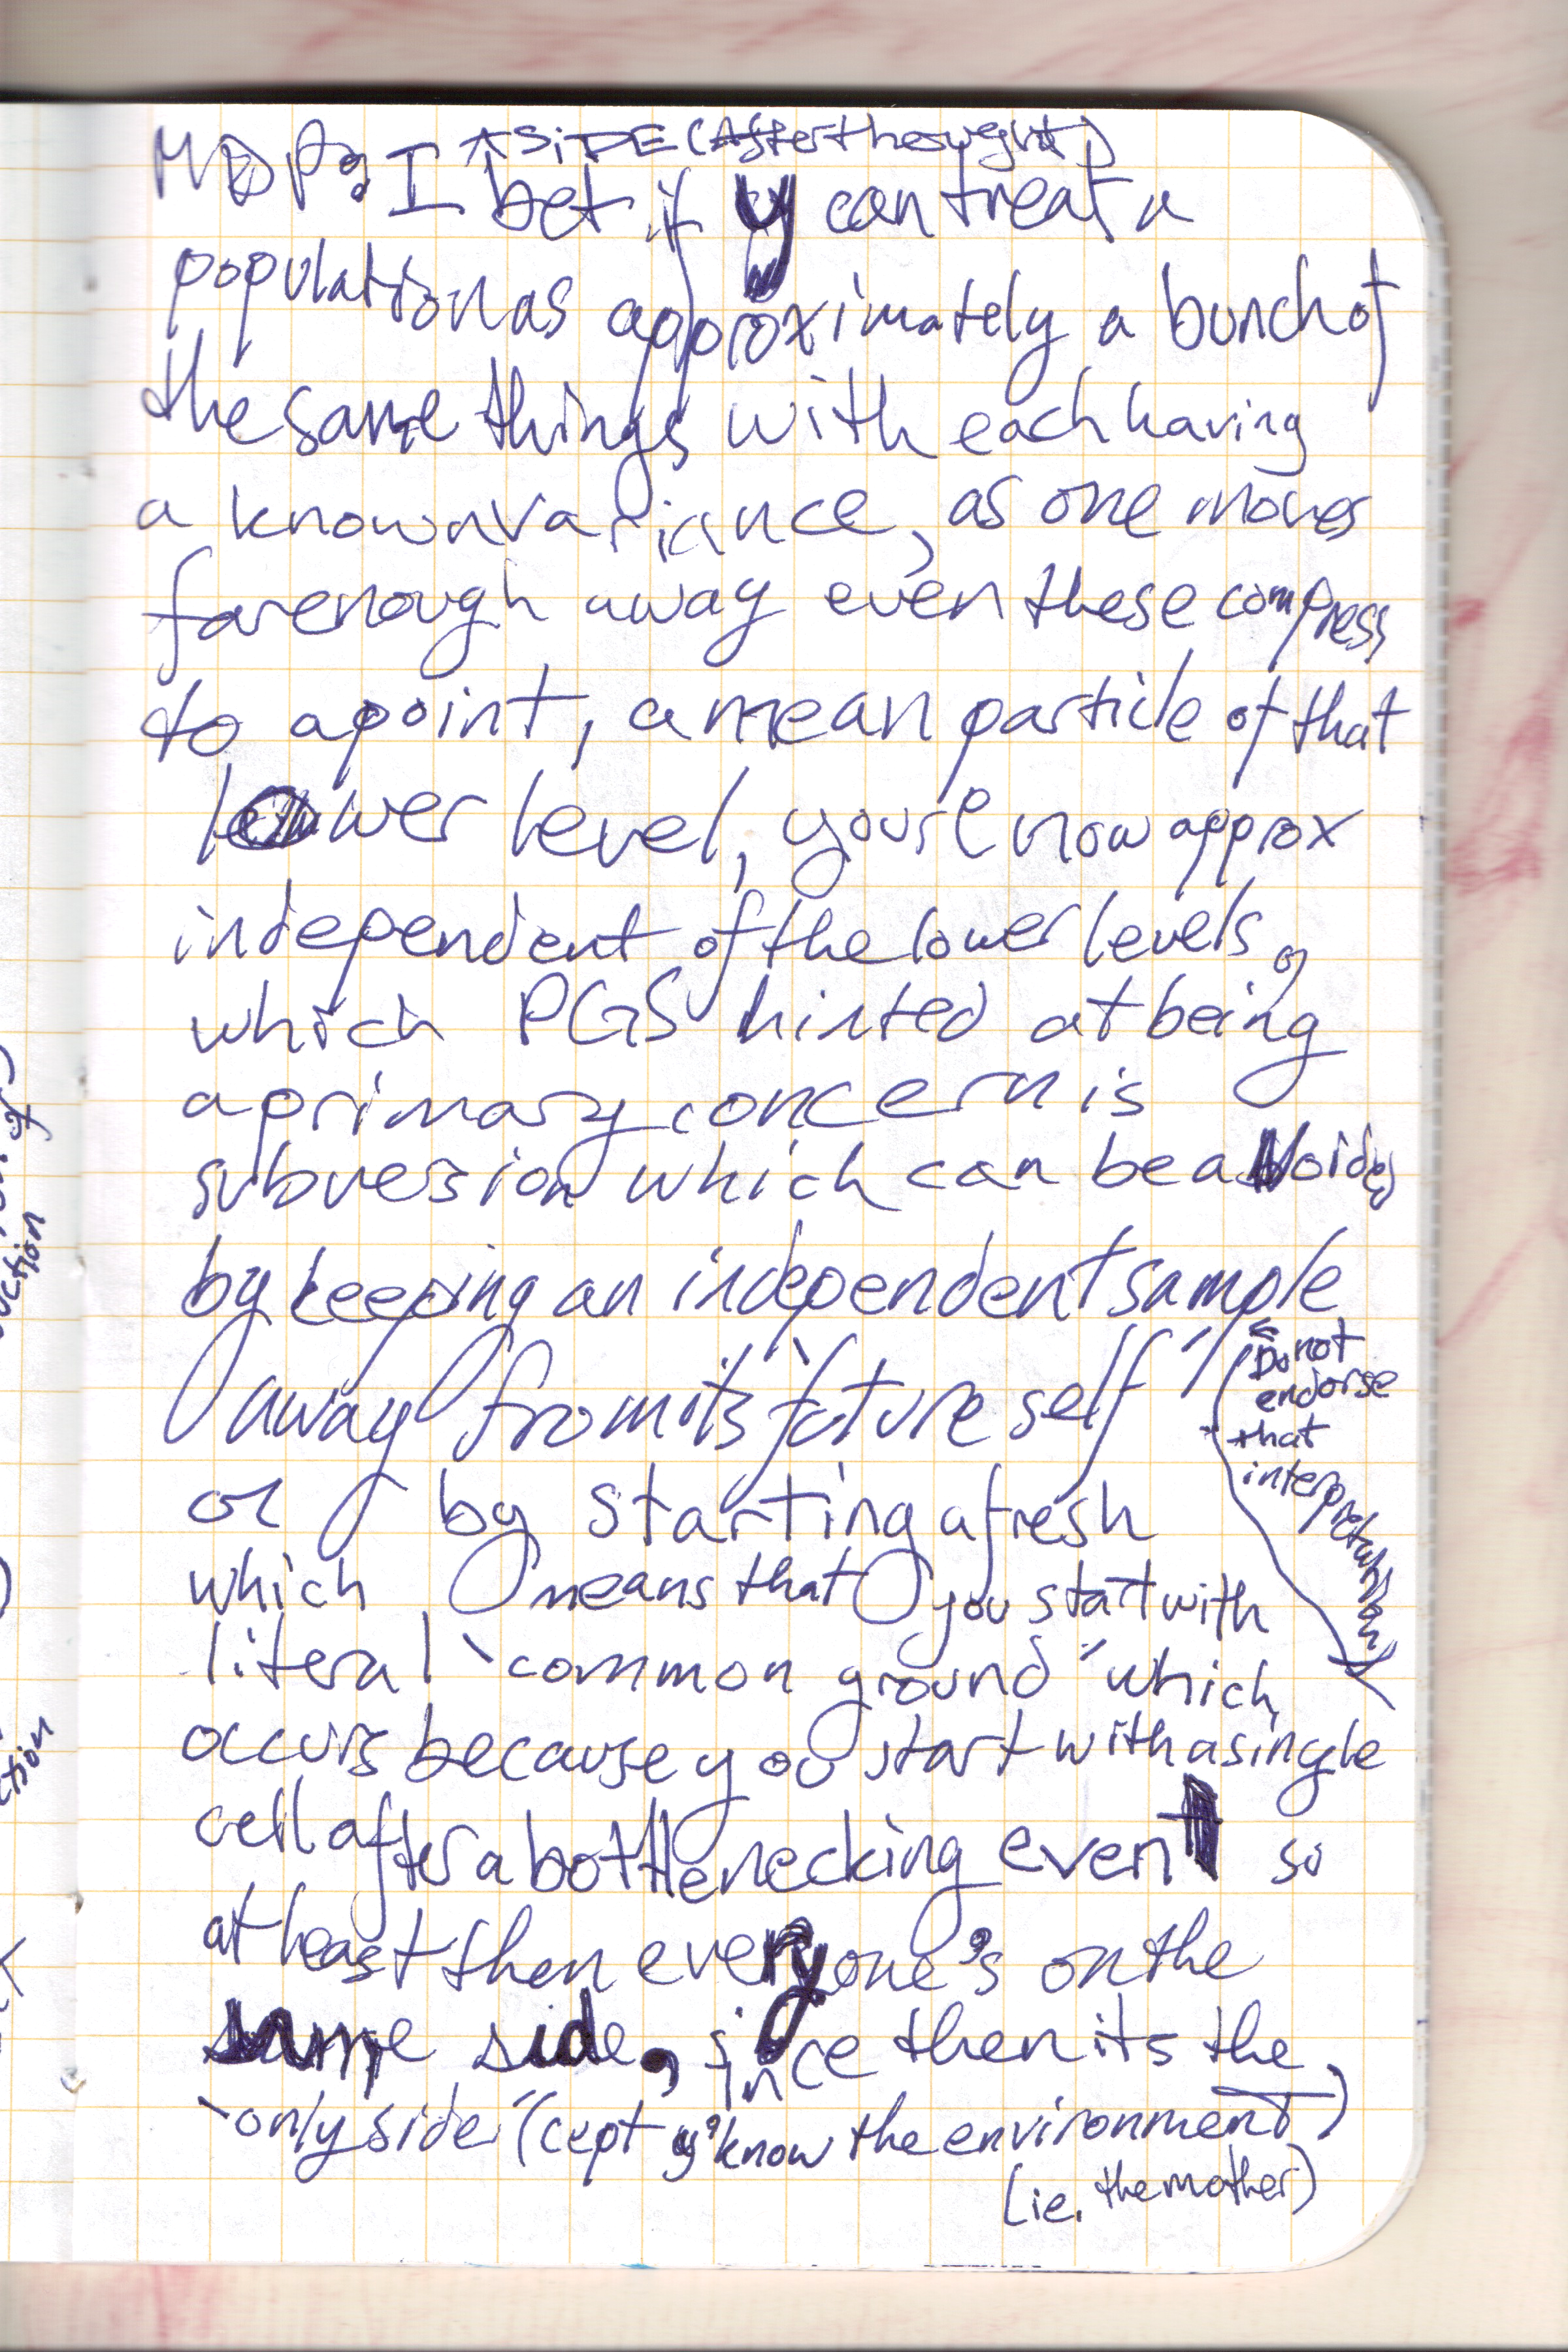 ASIDE (Afterthought)
MDP: I bet if y can treat a
population as approximately a bunch of
the same things with each having
a known variance, as one moves
far enough away even these compress
to a point, a mean particle of that
lower level, you're now approx
independent of the lower levels,
which PGS hinted at being
a primary concern is
subversion which can be avoided
by keeping an independent sample
away from its "future self"
← Do not
endorse
that
interpretation
or by starting afresh
which means that you start with
literal "common ground" which
occurs because you start with a single
cell after a bottlenecking event so
at least then everyone's on the
same side, since then its the
"only side" (cept y'know the environment)
(ie. the mother)
uction
ction